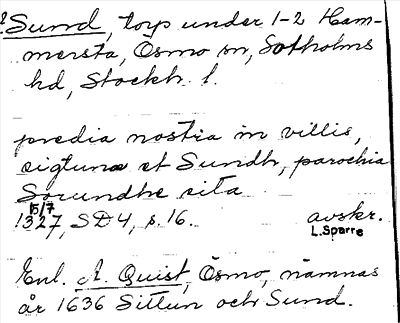 Sund, torp under 1-2 Ham-
mersta, Ösmo sn, Sotholms
hd, Stockh. l.
predia nostra in villis,
sigtuna et Sundh, parochia
Sorundhe sita
15/7
1327, SD 4, s. 16. avskr.
L. Sparre
Enl. A. Quist, Ösmo, nämnas
år 1636 Sittun och Sund.